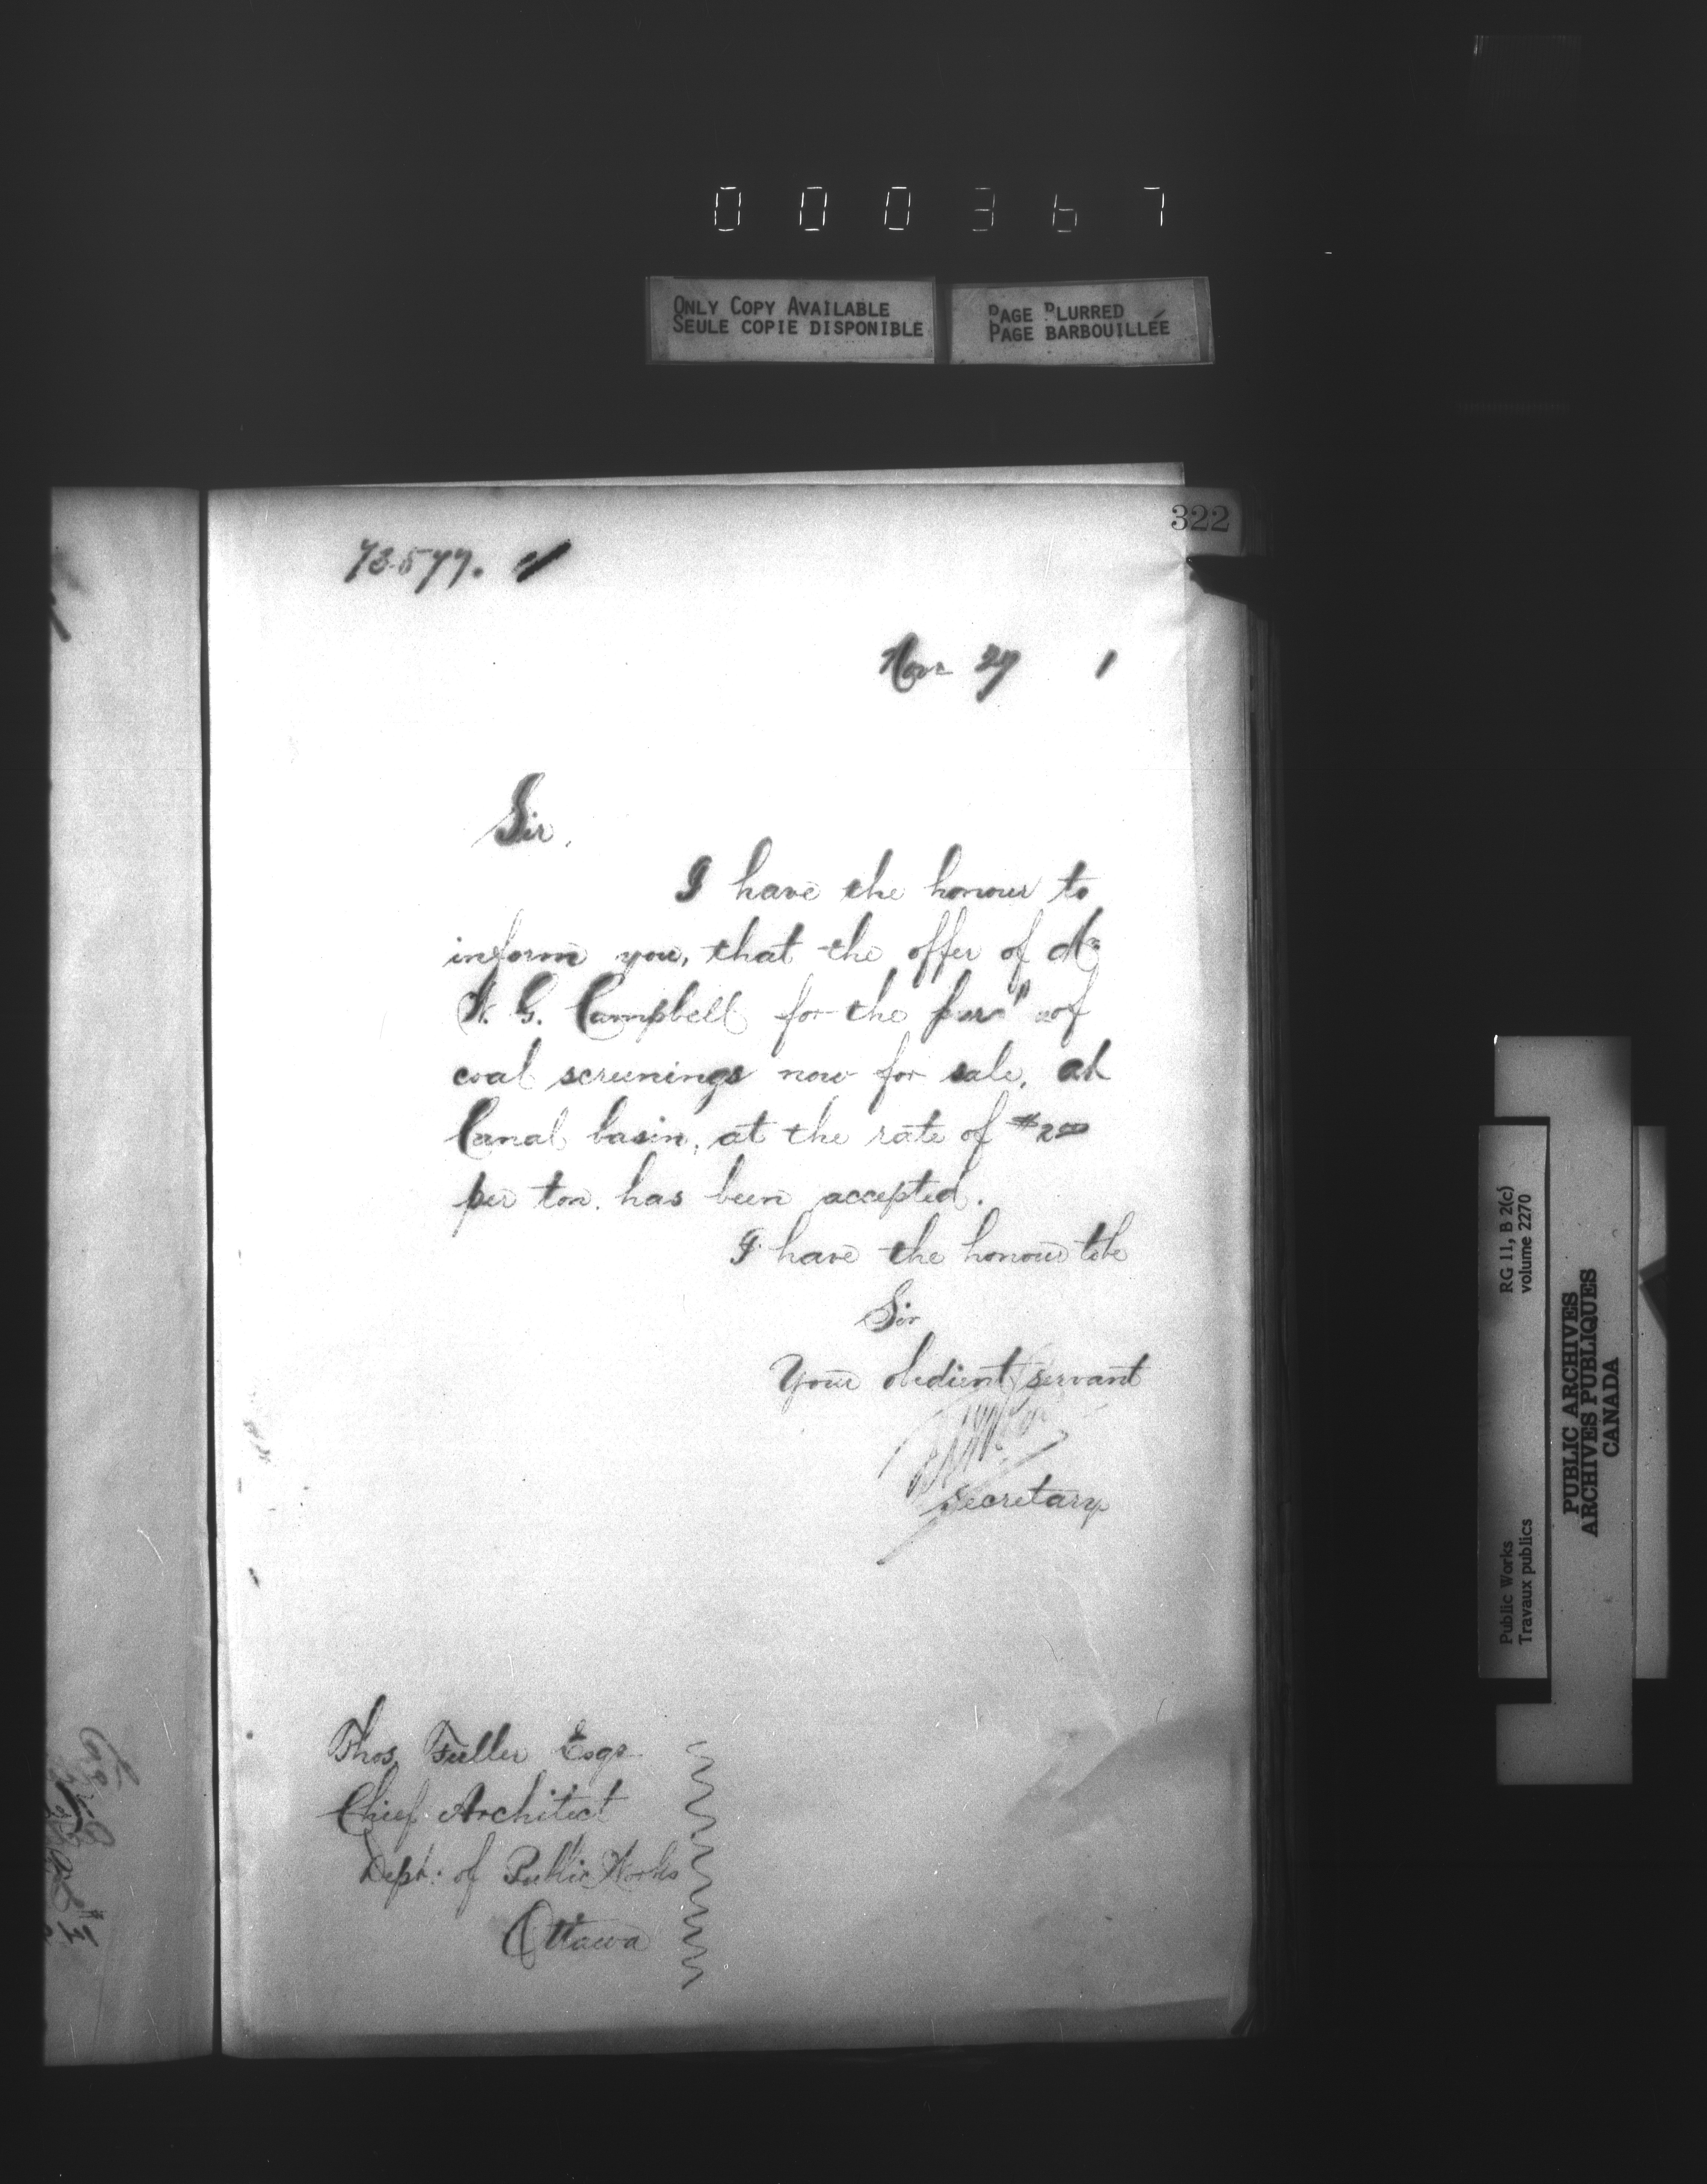 000367
ONLY COPY AVAILABLE
SEULE COPIE DISPONIBLE
PAGE BLURRED
PAGE BARBOUILLÉE
322
73577.
Nov 27 1
Sir,
I have the honour to
inform you, that the offer of Mr
G. Campbell for the of
coal screenings now for sale, at
Canal basin, at the rate of $2.00
per ton, has been accepted.
I have the honour to be
Sir
Your obedient servant
Secretary
Thos Fuller Esqr
Chief Architect
Dept: of Public Works
Ottawa
Public Works
Travaux publics
RG 11, B 2(c)
volume 2270
PUBLIC ARCHIVES
ARCHIVES PUBLIQUES
CANADA